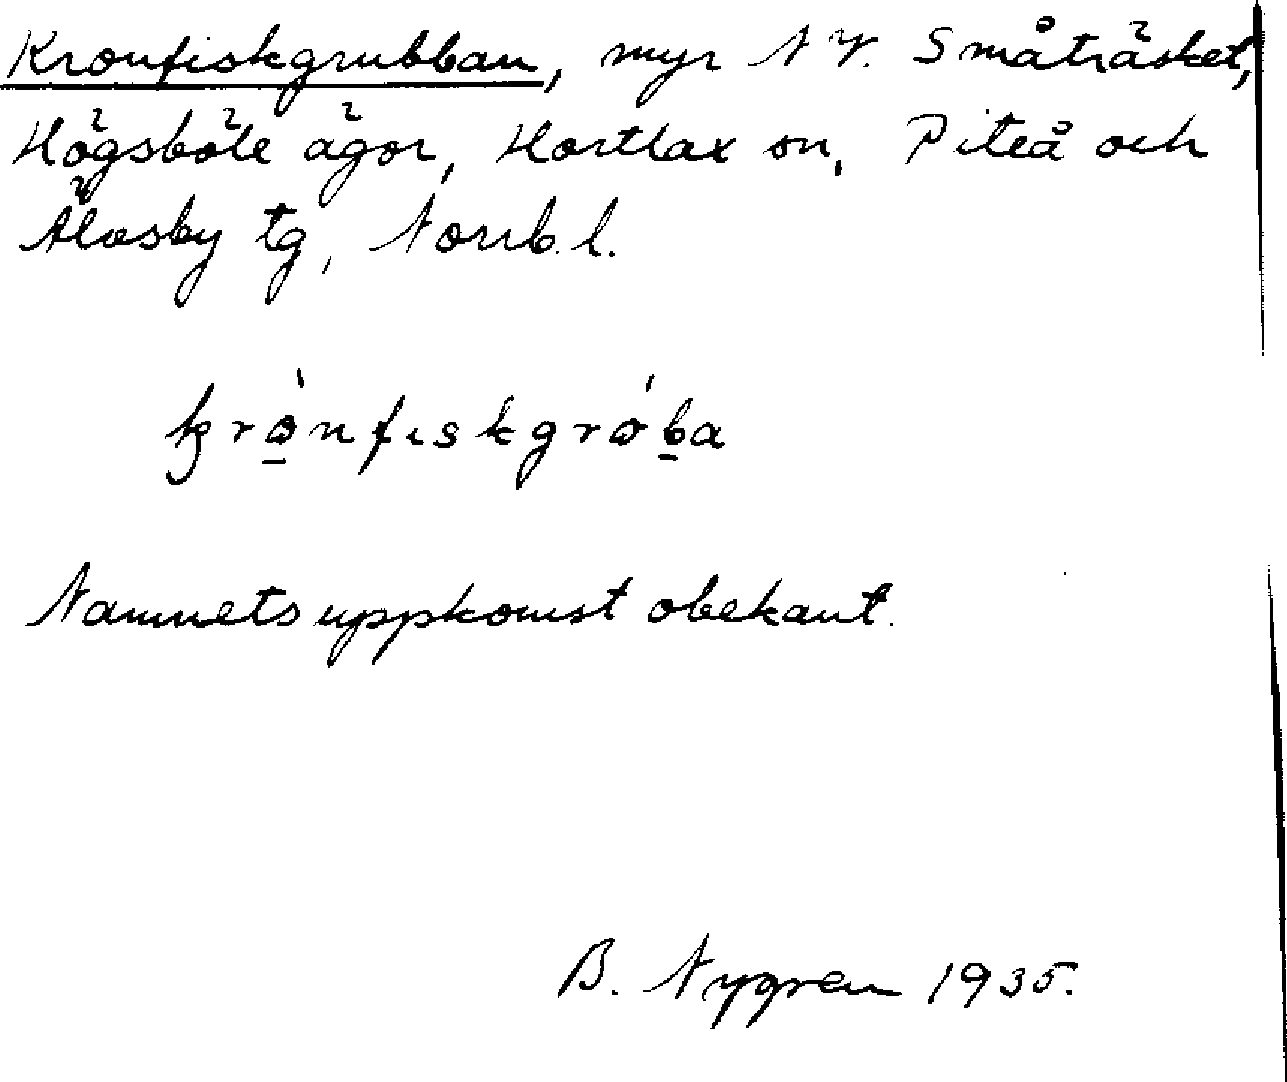 Kronfiskgrubban, myr NV. Småträsket,
Högsböle ägor, Hortlax sn, Piteå och
Älvsby tg, Norrb. l.
Namnets uppkomst obekant.
B. Nygren 1935.